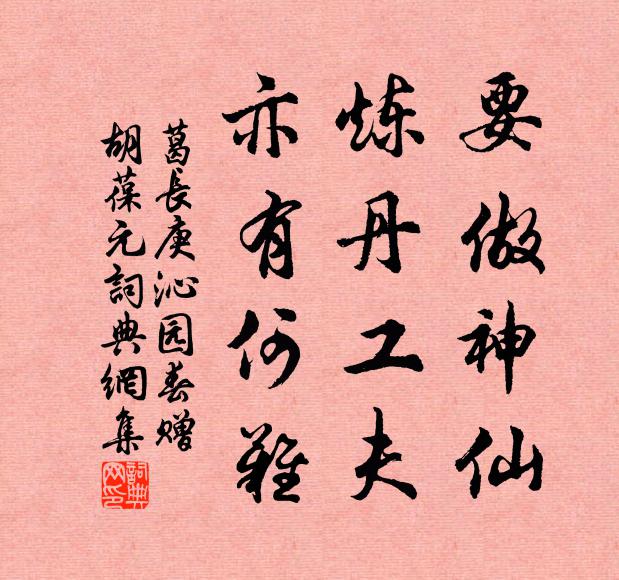 要做神仙
炼丹工夫
亦有何難
葛長庚沁园春赠
胡葆元詞典網集
詞典网印